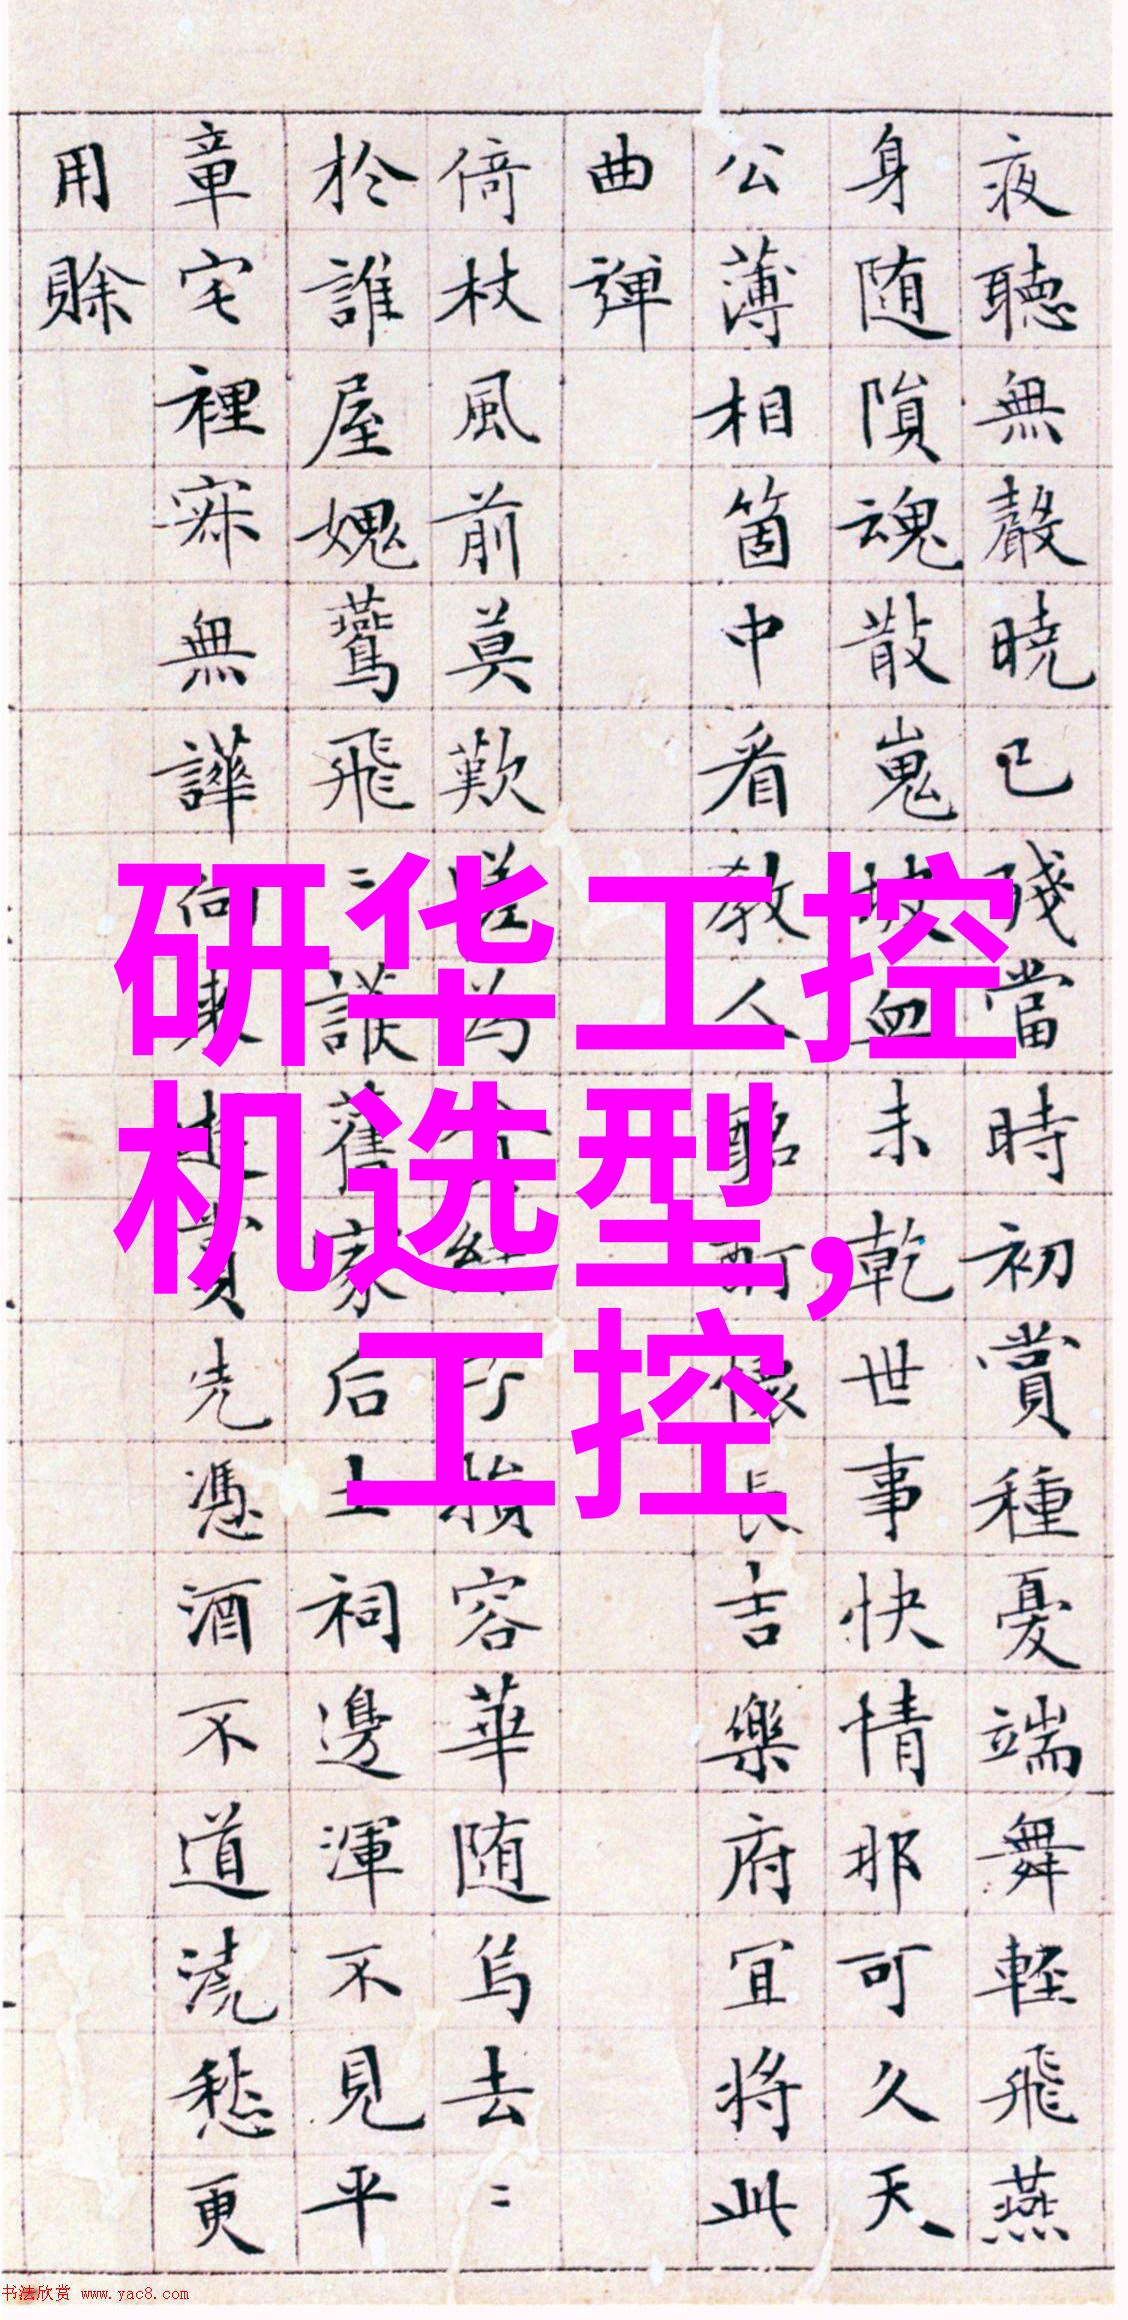 夜聽無聲曉已殘當時初賞種憂端舞輕飛燕
身随隕魂散嵬坡血未乾世事快情那可久天
公薄相箇中看教人酩酊懷長吉樂府宜將此
曲彈
倚杖風前莫歎嗟為行損容華随烏去〻
於誰屋媿鷰飛〻誤舊家后土祠邊渾不見平
章宅裡寂無譁尚來遊賞先憑酒不道澆愁更
用賒
研华工控
机选型,
工控
书法欣赏 www.yac8.com